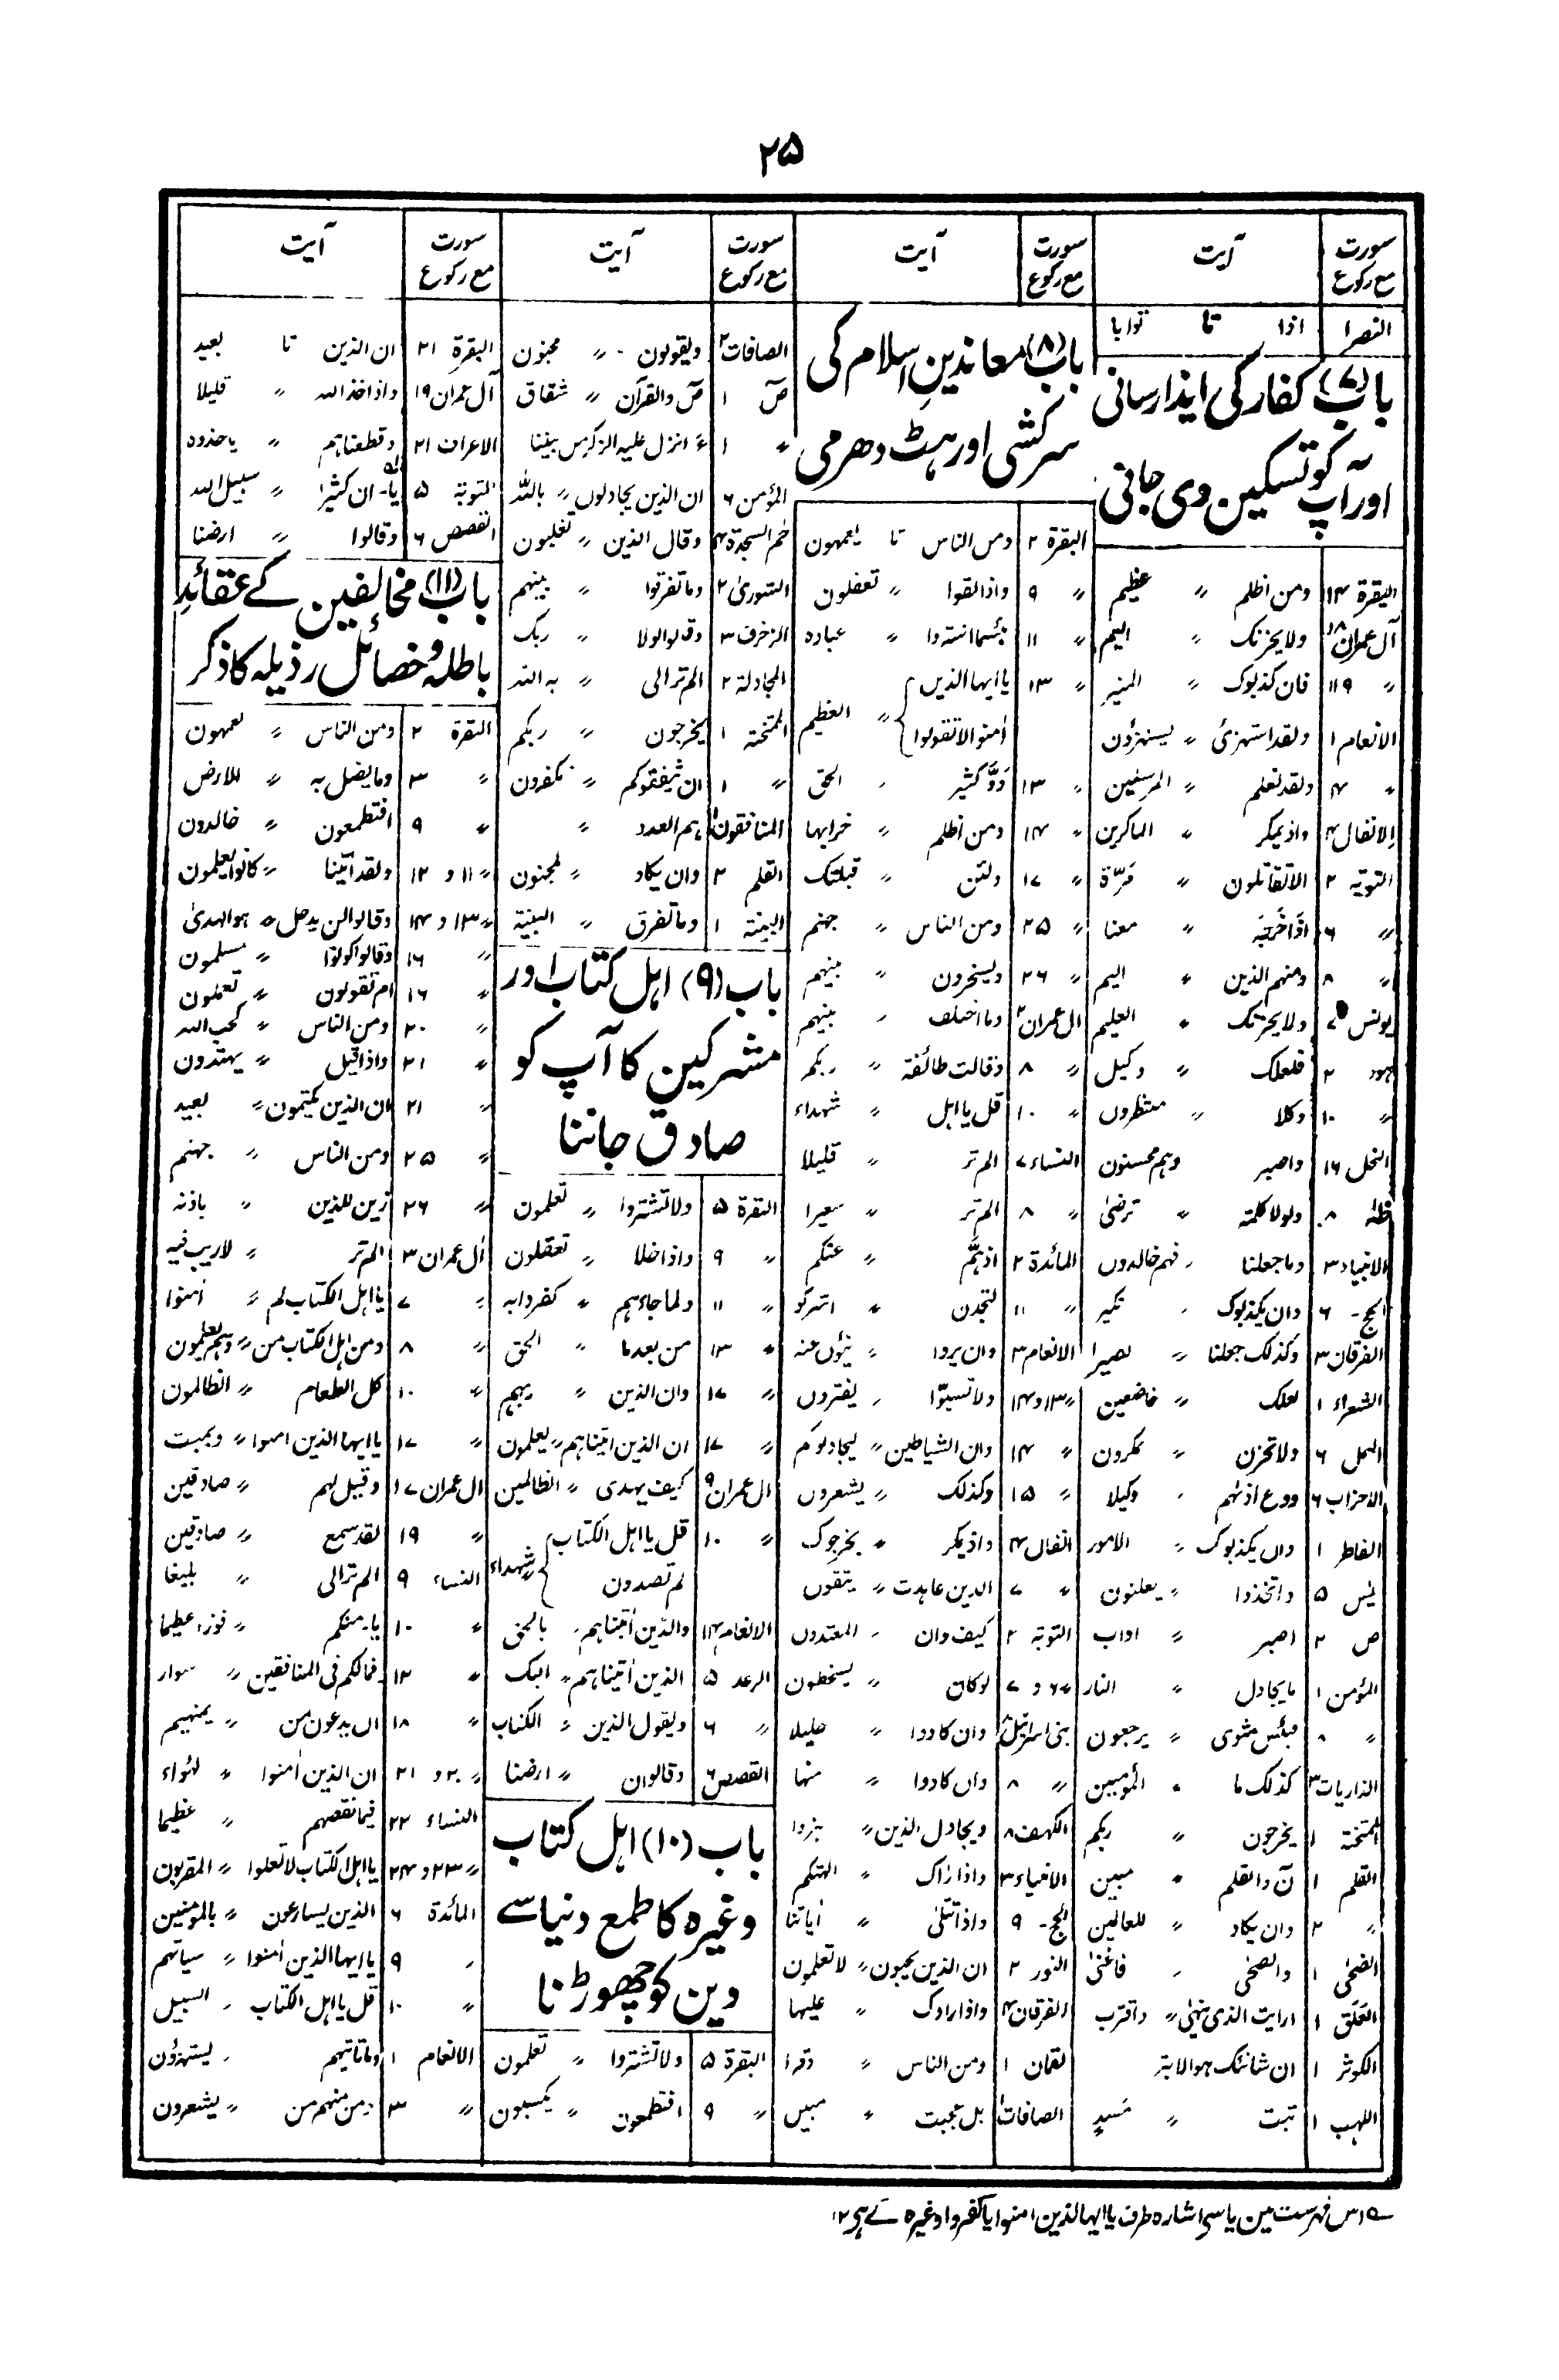 ۲۵
سورت مع رکوع | آیت
النصر ۱ | اذا تا توابا
باب (۷) کفار کی ایذا رسانی
اور آپ کو تسکین دی جاتی
البقرة ۱۴ | ومن اظلم 〃 عظیم
آل عمران ۱۸ | ولا یحزنک 〃 الیم
〃 ۱۹ | فان کذبوک 〃 المنیر
الانعام ۱ | ولقد استهزئ 〃 یستهزؤن
〃 ۴ | ولقد نعلم 〃 المرسلین
الانفال ۴ | واذ یمکر 〃 الماکرین
التوبه ۲ | الا تقاتلون 〃 مرّة
〃 ۶ | اذ اخرجه 〃 معنا
〃 ۸ | ومنهم الذین 〃 الیم
یونس ۷ | ولا یحزنک 〃 العلیم
هود ۲ | فلعلک 〃 وکیل
〃 ۱۰ | وکلا 〃 منتظرون
النحل ۱۶ | واصبر وهم محسنون
طٰهٰ ۸ | ولولا کلمته 〃 ترضیٰ
الانبیاء ۳ | وما جعلنا 〃 فهم خالدون
الحج ۶ | وان یکذبوک 〃 نکیر
الفرقان ۳ | وکذلک جعلنا 〃 نصیرا
الشعراء ۱ | لعلک 〃 خاضعین
النمل ۶ | ولا تحزن 〃 یمکرون
الاحزاب ۶ | ودع اذٰىهم 〃 وکیلا
الفاطر ۱ | وان یکذبوک 〃 الامور
یٰس ۵ | واتخذوا 〃 یعلنون
ص ۲ | اصبر 〃 اواب
المؤمن ۱ | ما یجادل 〃 النار
〃 ۸ | فبئس مثوی 〃 یرجعون
الذاریات ۳ | کذلک ما 〃 المؤمنین
الممتحنة ۱ | یخرجون 〃 ربکم
القلم ۱ | نٓ والقلم 〃 مبین
〃 ۲ | وان یکاد 〃 للعالمین
الضحیٰ ۱ | والضحیٰ 〃 فاغنیٰ
العَلَق ۱ | ارایت الذی ینهیٰ 〃 واقترب
الکوثر ۱ | ان شانئک هو الابتر
اللهب ۱ | تبت 〃 مَسَدٍ
سورت مع رکوع | آیت
باب (۸) معاندینِ اسلام کی
سرکشی اور ہٹ دھرمی
البقرة ۲ | ومن الناس تا یعمهون
〃 ۹ | واذا لقوا 〃 تعقلون
〃 ۱۱ | بئسما اشتروا 〃 عباده
〃 ۱۳ | یا ایها الذین اٰمنوا لا تقولوا 〃 العظیم
〃 ۱۳ | ودَّ کثیر 〃 الحق
〃 ۱۴ | ومن اظلم 〃 خرابها
〃 ۱۷ | ولئن 〃 قبلتک
〃 ۲۵ | ومن الناس 〃 جهنم
〃 ۲۶ | ویسخرون 〃 بینهم
ال عمران ۲ | وما اختلف 〃 بینهم
〃 ۸ | وقالت طائفة 〃 ربکم
〃 ۱۰ | قل یا اهل 〃 شهداء
النساء ۷ | الم تر 〃 قلیلا
〃 ۸ | الم تر 〃 سعیرا
المائدة ۲ | اذ همّ 〃 عنکم
〃 ۱۱ | لتجدن 〃 اشرکو
الانعام ۳ | وان یروا 〃 ینئون عنه
〃 ۱۳ و ۱۴ | ولا تسبوّا 〃 یفترون
〃 ۱۴ | وان الشیاطین 〃 لیجادلوکم
〃 ۱۵ | وکذلک 〃 یشعرون
انفال ۴ | واذ یمکر 〃 یخرجوک
〃 ۷ | الذین عاهدت 〃 یتقون
التوبه ۲ | کیف وان 〃 المعتدون
〃 ۶ و ۷ | لو کان 〃 یسخطون
بنی اسرائیل ۸ | وان کادوا 〃 خلیلا
〃 ۸ | وان کادوا 〃 منها
الکهف ۸ | ویجادل الذین 〃 هزوا
الانبیاء ۳ | واذا راٰک 〃 الهتکم
الحج ۹ | واذا تتلیٰ 〃 اٰیاتنا
النور ۲ | ان الذین یحبون 〃 لا تعلمون
الفرقان ۴ | واذا راوک 〃 علیها
لقمان ۱ | ومن الناس 〃 وقرا
الصافات ۱ | بل عجبت 〃 مبین
سورت مع رکوع | آیت
الصافات ۲ | ویقولون 〃 مجنون
صٓ ۱ | صٓ والقرآن 〃 شقاق
〃 ۱ | ءانزل علیه الذکر من بیننا
المؤمن ۶ | ان الذین یجادلون 〃 بالله
حٰم السجدة ۴ | وقال الذین 〃 تغلبون
الشوریٰ ۲ | وما تفرقوا 〃 بینهم
الزخرف ۳ | وقالوا لولا 〃 ربک
المجادلة ۲ | الم تر الی 〃 به الله
الممتحنة ۱ | یخرجون 〃 ربکم
〃 ۱ | ان یثقفوکم 〃 تکفرون
المنافقون ۱ | هم العدو 〃
القلم ۲ | وان یکاد 〃 لمجنون
البینة ۱ | وما تفرق 〃 البینة
باب (۹) اہل کتاب اور
مشرکین کا آپ کو
صادق جاننا
البقرة ۵ | ولا تشتروا 〃 تعلمون
〃 ۹ | واذا خلا 〃 تعقلون
〃 ۱۱ | ولما جاءهم 〃 کفروا به
〃 ۱۳ | من بعد ما 〃 الحق
〃 ۱۷ | وان الذین 〃 ربهم
〃 ۱۷ | ان الذین اٰتیناهم 〃 یعلمون
ال عمران ۹ | کیف یهدی 〃 الظالمین
〃 ۱۰ | قل یا اهل الکتاب لم تصدون 〃 شهداء
الانعام ۱۴ | والذین اٰتیناهم 〃 بالحق
الرعد ۵ | الذین اٰتیناهم 〃 الیک
〃 ۶ | ویقول الذین 〃 الکتاب
القصص ۶ | وقالوا ان 〃 ارضنا
باب (۱۰) اہل کتاب
وغیرہ کا طمع دنیا سے
دین کو چھوڑنا
البقرة ۵ | ولا تشتروا 〃 تعلمون
〃 ۹ | افتطمعون 〃 یکسبون
سورت مع رکوع | آیت
البقرة ۲۱ | ان الذین تا بعید
آل عمران ۱۹ | واذ اخذ الله 〃 قلیلا
الاعراف ۲۱ | وقطعناهم 〃 یاخذوه
التوبة ۵ | یا ۔ ان کثیرا 〃 سبیل الله
القصص ۶ | وقالوا 〃 ارضنا
باب (۱۱) مخالفین کے عقائدِ
باطلہ و خصائل رذیلہ کا ذکر
البقرة ۲ | ومن الناس 〃 یعمهون
〃 ۳ | وما یضل به 〃 الارض
〃 ۹ | افتطمعون 〃 خالدون
〃 ۱۱ و ۱۲ | ولقد اٰتینا 〃 کانوا یعلمون
〃 ۱۳ و ۱۴ | وقالوا لن یدخل 〃 هو الهدیٰ
〃 ۱۶ | وقالوا کونوا 〃 مسلمون
〃 ۱۶ | ام تقولون 〃 تعملون
〃 ۲۰ | ومن الناس 〃 کحب الله
〃 ۲۱ | واذا قیل 〃 یهتدون
〃 ۲۱ | ان الذین یکتمون 〃 بعید
〃 ۲۵ | ومن الناس 〃 جهنم
〃 ۲۶ | زین للذین 〃 باذنه
اٰل عمران ۳ | الم تر 〃 لا ریب فیه
〃 ۷ | یا اهل الکتاب لم 〃 اٰمنوا
〃 ۸ | ومن اهل الکتاب من 〃 وهم یعلمون
〃 ۱۰ | کل الطعام 〃 الظالمون
〃 ۱۷ | یا ایها الذین اٰمنوا 〃 ویمیت
ال عمران ۱۷ | وقیل لهم 〃 صادقین
〃 ۱۹ | لقد سمع 〃 صادقین
النساء ۹ | الم تر الی 〃 بلیغا
〃 ۱۰ | یا ۔ منکم 〃 فوزا عظیما
〃 ۱۲ | فما لکم فی المنافقین 〃 سواء
〃 ۱۸ | ان یدعون من 〃 یمنیهم
〃 ۲۰ و ۲۱ | ان الذین اٰمنوا 〃 هٰؤلاء
النساء ۲۲ | فبما نقضهم 〃 عظیما
〃 ۲۳ و ۲۴ | یا اهل الکتاب لا تغلوا 〃 المقربون
المائدة ۶ | الذین یسارعون 〃 بالمومنین
〃 ۹ | یا ایها الذین اٰمنوا 〃 سیاتهم
〃 ۱۰ | قل یا اهل الکتاب 〃 السبیل
الانعام ۱ | وما تاتیهم 〃 یستهزؤن
〃 ۳ | ومن منهم من 〃 یشعرون
؎ اس فہرست میں یا سے اشارہ طرف یا ایہا الذین اٰمنوا یا کفروا وغیرہ کے ہے ۱۲